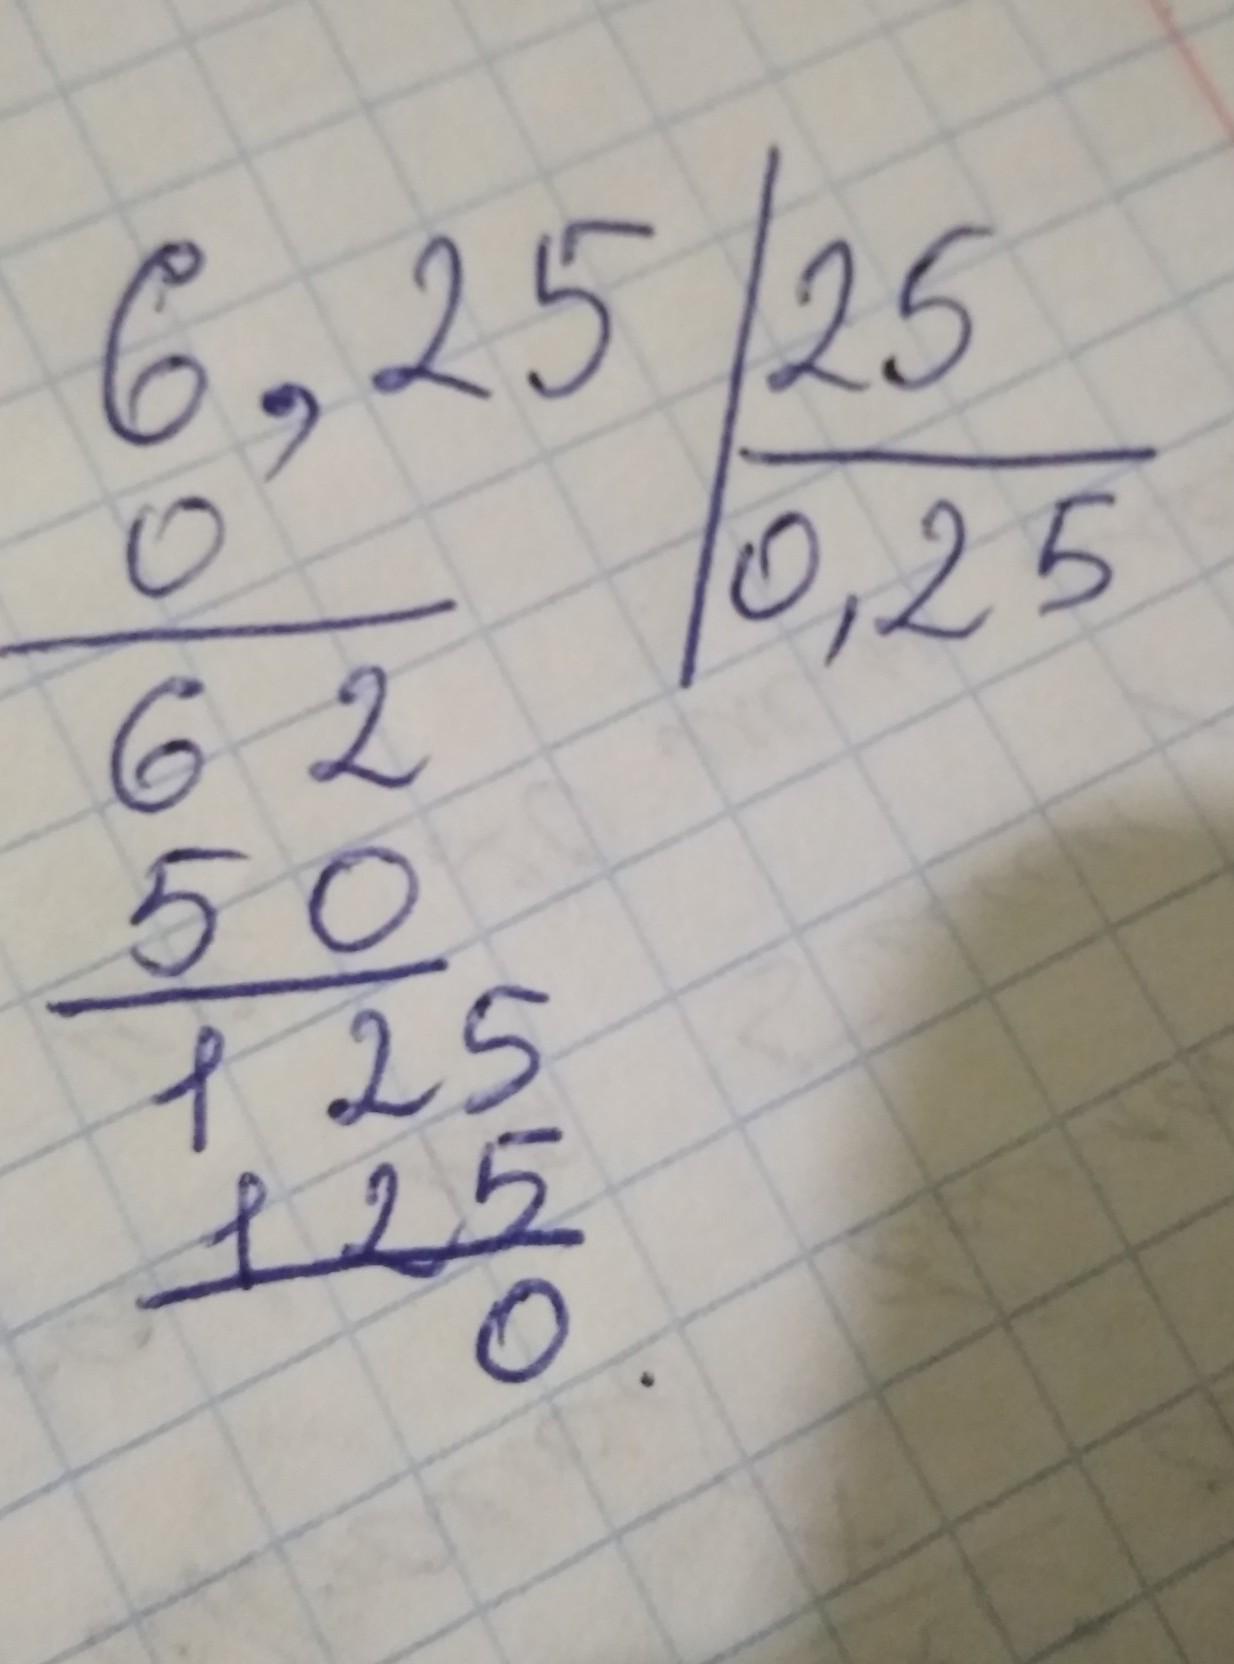 6,25 | 25
0 | 0,25
62
50
125
125
0